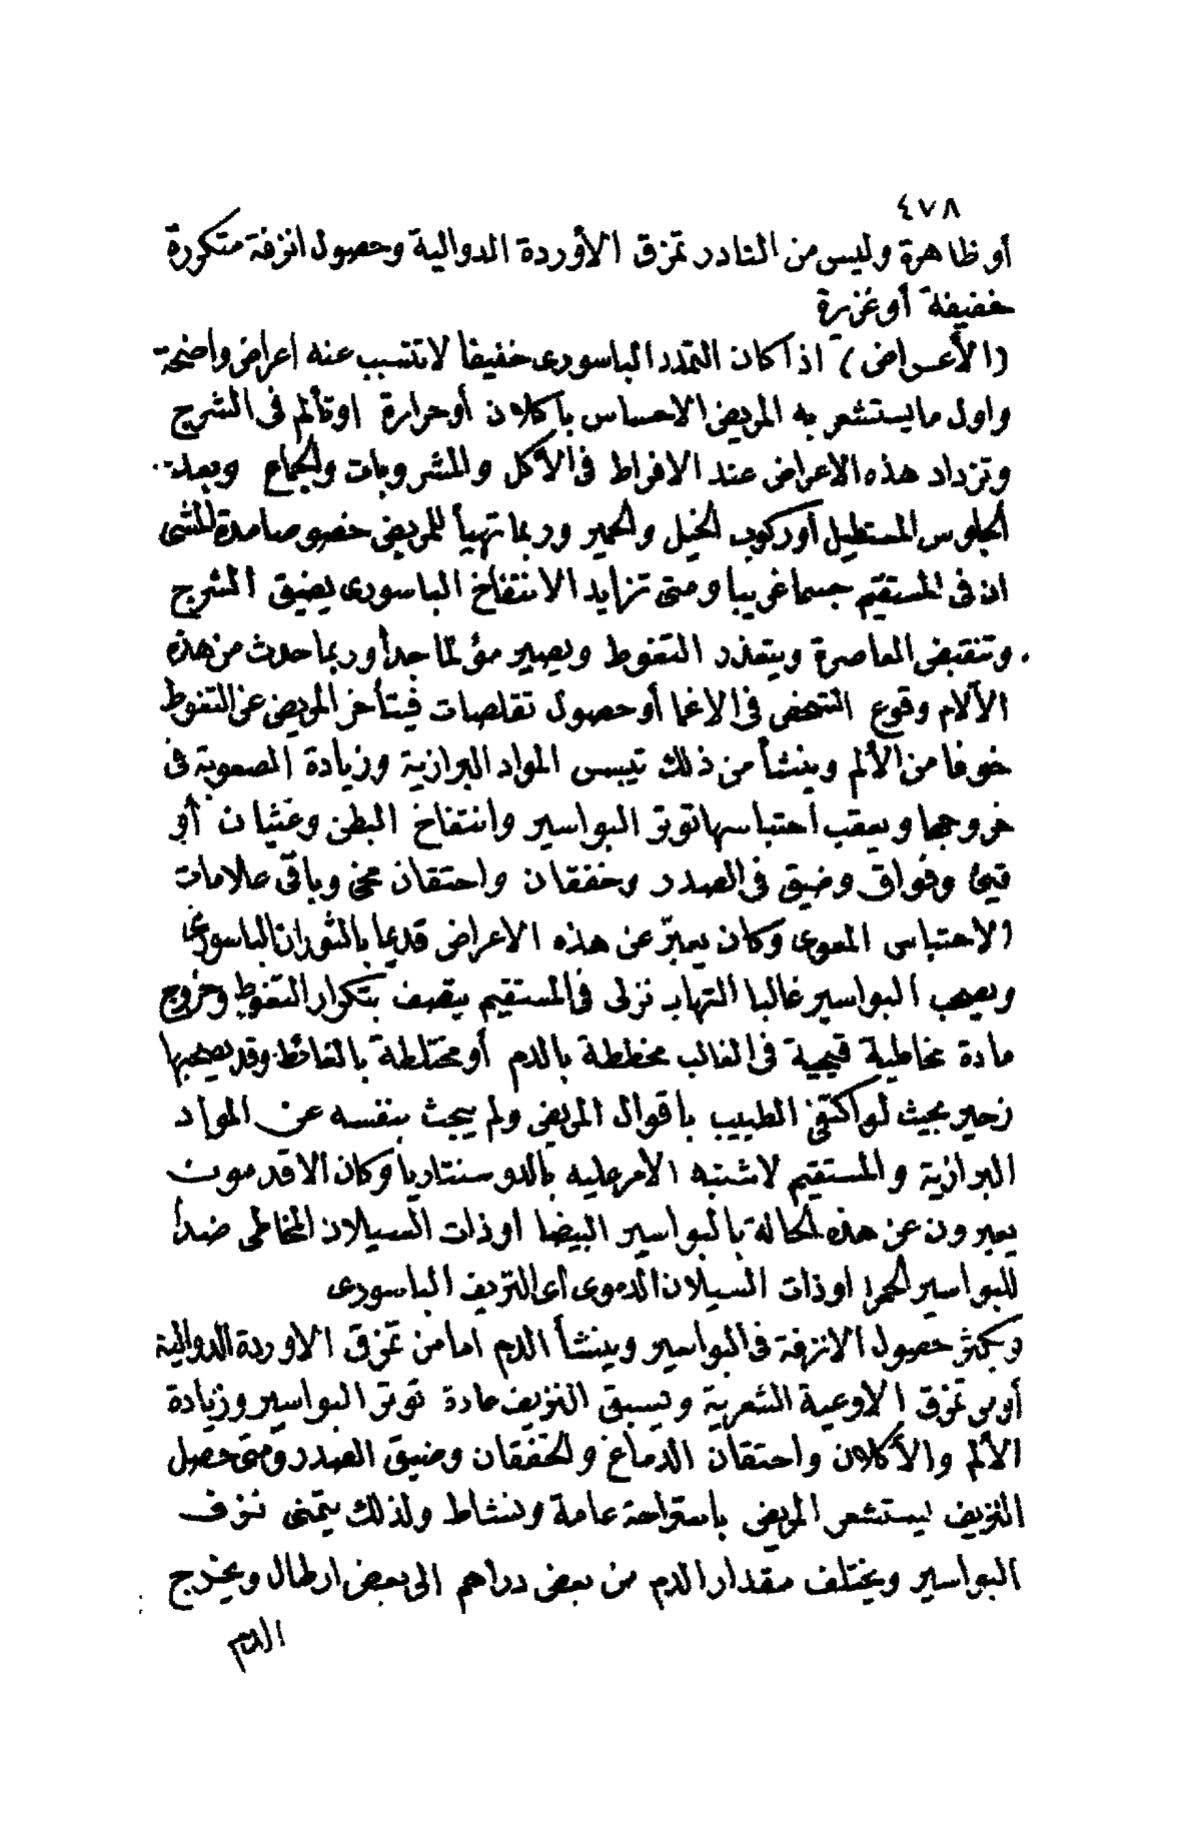 ٤٧٨
أو ظاهرة وليس من النادر تمزق الأوردة الدوالية وحصول انزفة متكررة
خفيفة أو غزيرة
(الأعراض) اذا كان التمدد الباسورى خفيفا لا تتسبب عنه اعراض واضحة
واول ما يستشعر به المريض الاحساس بأكلان أو حرارة او تألم فى الشرج
وتزداد هذه الاعراض عند الافراط فى الأكل والمشروبات والجماع وبعد
الجلوس المستطيل أو ركوب الخيل والحمير وربما تهيأ للمريض خصوصا مدة المشى
ان فى المستقيم جسما غريبا ومتى تزايد الانتفاخ الباسورى يضيق الشرج
وتنقبض العاصرة ويتعذر التغوط ويصير مؤلما جدا وربما حدث من هذه
الآلام وقوع الشخص فى الاغما أو حصول تقلصات فيتأخر المريض عن التغوط
خوفا من الألم وينشأ من ذلك تيبس المواد البرازية وزيادة الصعوبة فى
خروجها ويعقب احتباسها توتر البواسير وانتفاخ البطن وغثيان أو
قيئ وفواق وضيق فى الصدر وخفقان واحتقان مخى وباقى علامات
الاحتباس المعوى وكان يعبر عن هذه الاعراض قديما بالثوران الباسورى
ويصحب البواسير غالبا التهاب نزلى فى المستقيم يتصف بتكرار التغوط وخروج
مادة مخاطية قيحية فى الغالب مخططة بالدم أو مختلطة بالغائط وقد يصحبها
زحير بحيث لو اكتفى الطبيب بأقوال المريض ولم يبحث بنفسه عن المواد
البرازية والمستقيم لاشتبه الامر عليه بالدوسنتاريا وكان الاقدمون
يعبرون عن هذه الحالة بالبواسير البيضا او ذات السيلان المخاطى ضدا
للبواسير الحمرا او ذات السيلان الدموى أى النزيف الباسورى
ويكثر حصول الانزفة فى البواسير وينشأ الدم اما من تمزق الاوردة الدوالية
أو من تمزق الاوعية الشعرية ويسبق النزيف عادة توتر البواسير وزيادة
الألم والأكلان واحتقان الدماغ والخفقان وضيق الصدر ومتى حصل
النزيف يستشعر المريض باستراحة عامة ونشاط ولذلك يتمنى نزف
البواسير ويختلف مقدار الدم من بعض دراهم الى بعض ارطال ويخرج
الدم